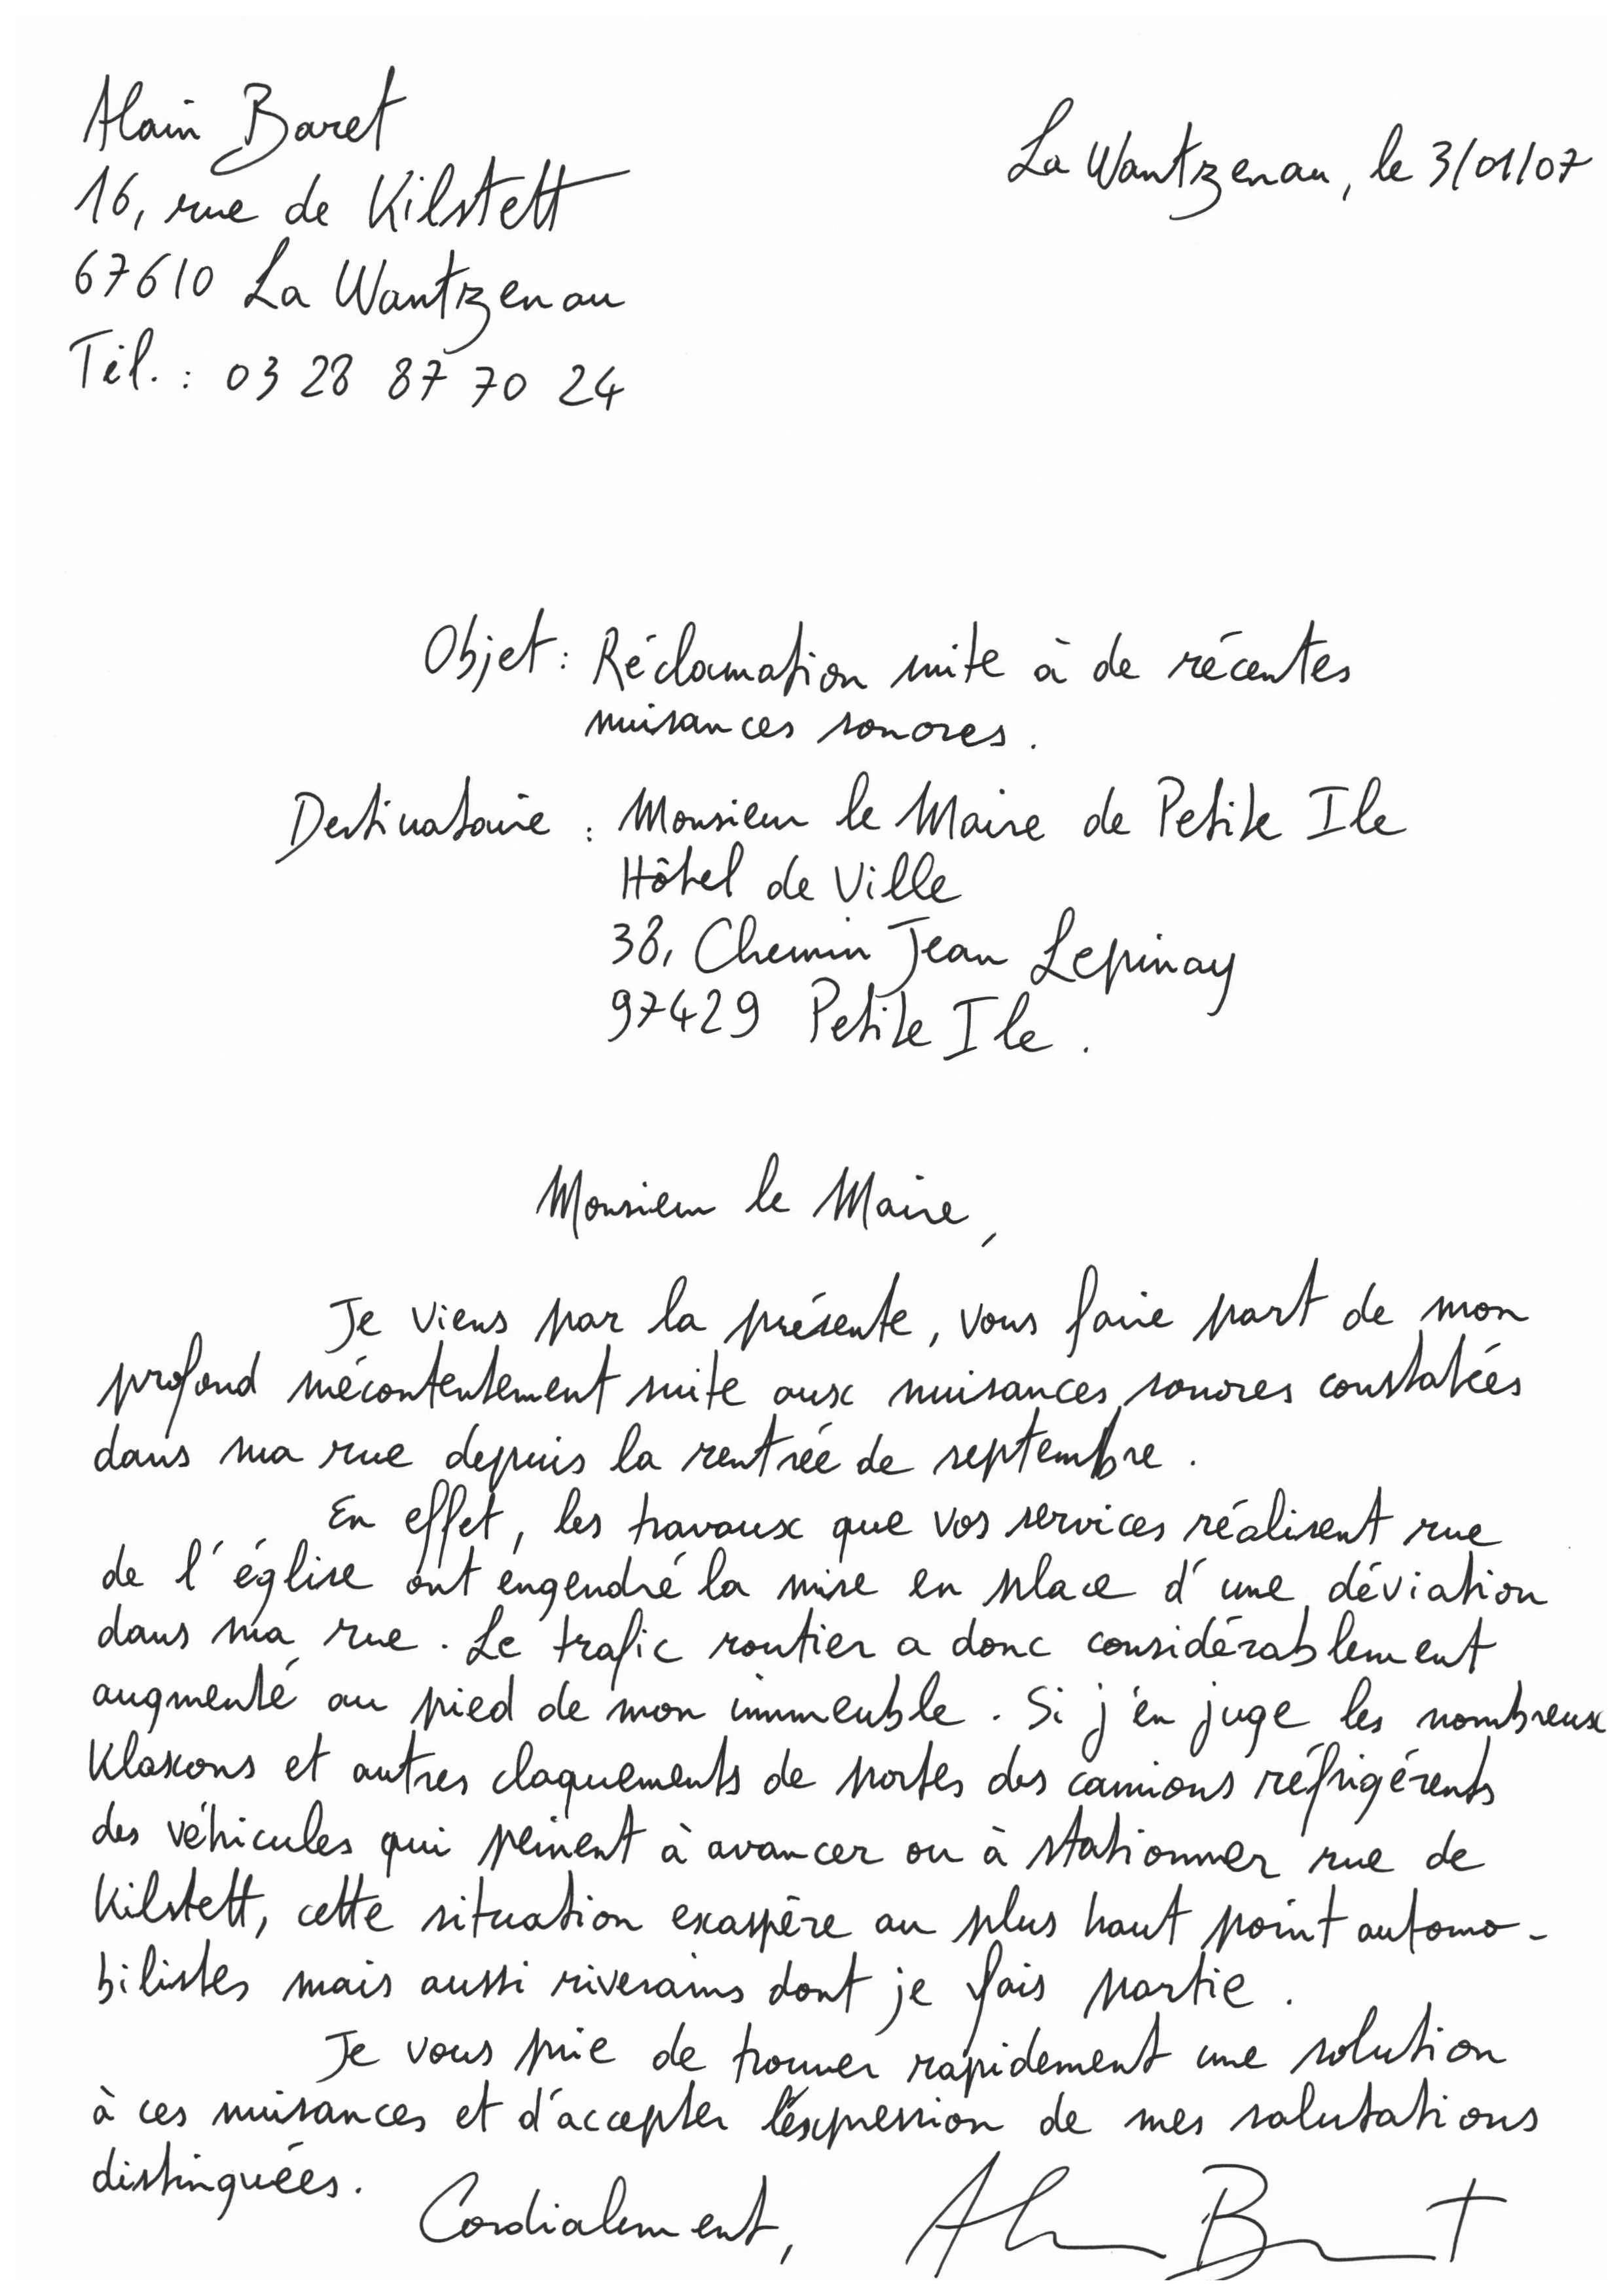 Alain Baret
La Wantzenau, le 3/01/07
16, rue de Kilstett
67610 La Wantzenau
Tél. : 03 28 87 70 24
Objet : Réclamation suite à de récentes
nuisances sonores.
Destinataire : Monsieur le Maire de Petite Ile
Hôtel de Ville
38, Chemin Jean Lepinay
97429 Petite Ile.
Monsieur le Maire,
Je viens par la présente, vous faire part de mon
profond mécontentement suite aux nuisances sonores constatées
dans ma rue depuis la rentrée de septembre.
En effet, les travaux que vos services réalisent rue
de l'église ont engendré la mise en place d'une déviation
dans ma rue. Le trafic routier a donc considérablement
augmenté au pied de mon immeuble. Si j'en juge les nombreux
Klaxons et autres claquements de portes des camions réfrigérents
des véhicules qui peinent à avancer ou à stationner rue de
Kilstett, cette situation exaspère au plus haut point automo-
bilistes mais aussi riverains dont je fais partie.
Je vous prie de trouver rapidement une solution
à ces nuisances et d'accepter l'expression de mes salutations
distinguées.
Cordialement,